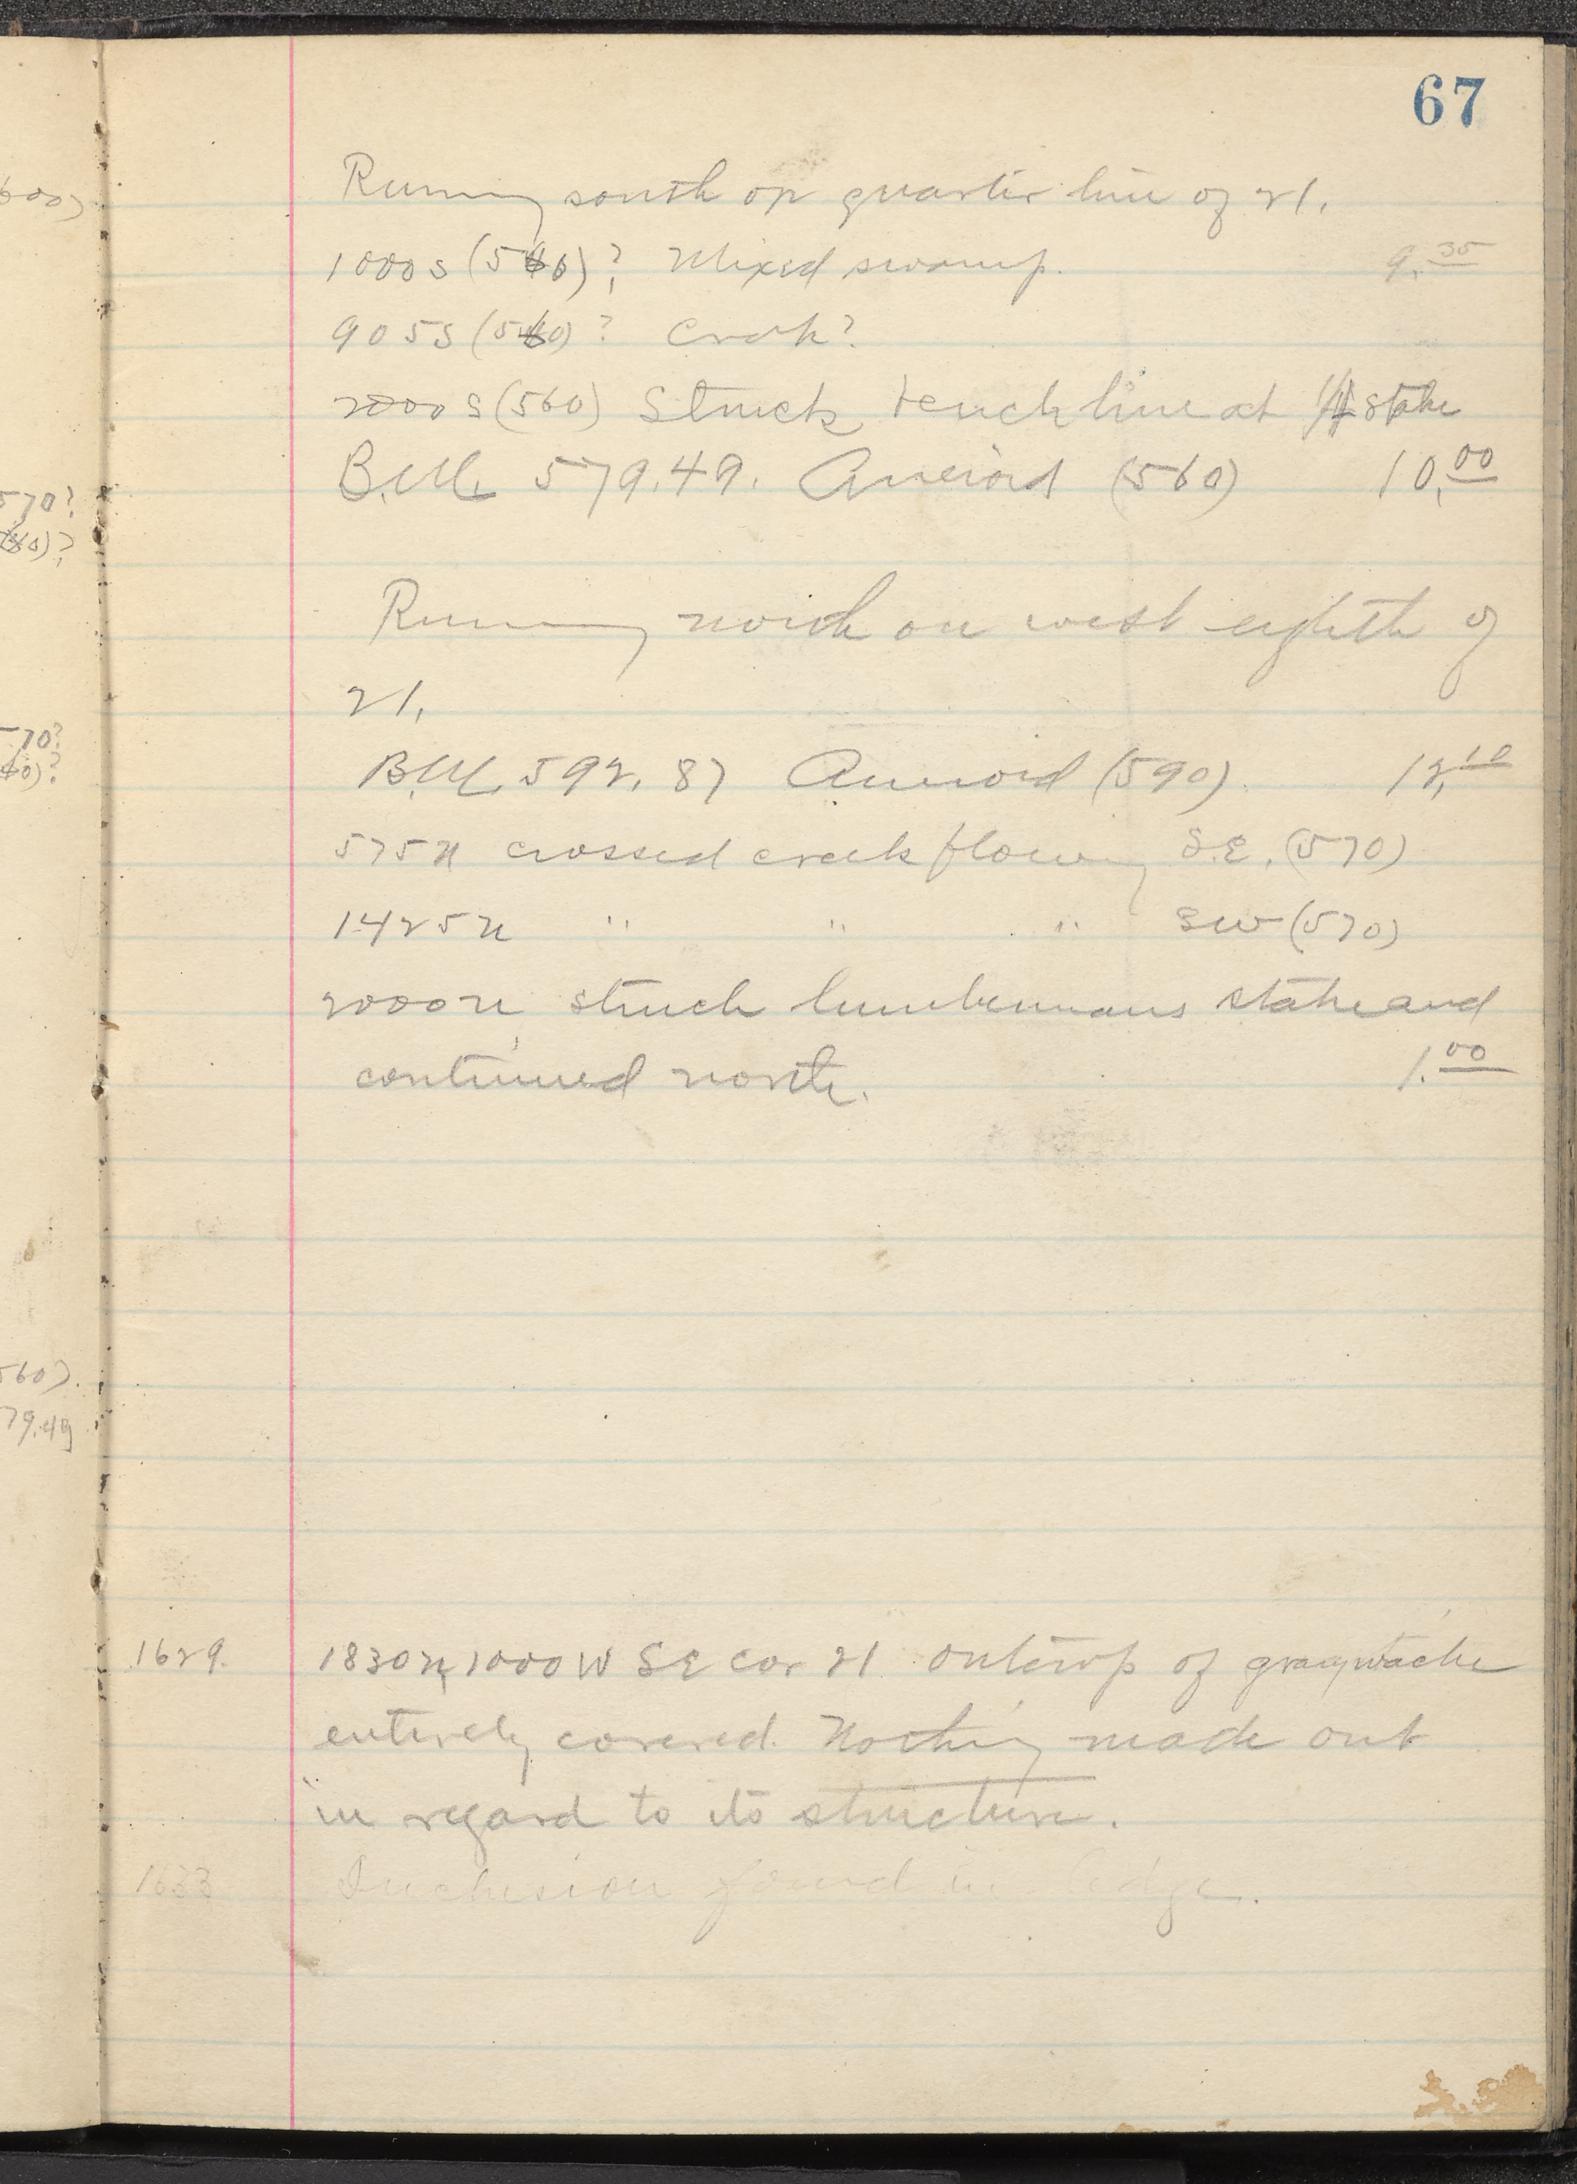 67
Running south on quarter line of 21.
1000 S (560)? Mixed swamp. 9.35
905 S (560)? Creek?
2000 S (560) Struck bench line at 1/4 stake
B.M. 579.49. Aneroid (560) 10.00
Running north on west eighth of
21.
B.M. 592.87 Aneroid (590). 12.10
575 N crossed creek flowing S.E. (570)
1425 N " " " SW (570)
2000 N struck lumbermans stake and
continued north. 1.00
1629. 1830 N, 1000 W SE cor 21 outcrop of graywacke
entirely covered. Nothing made out
in regard to its structure.
1633 Inclusion found in ledge.
600)
570?
570?
560).
79.49